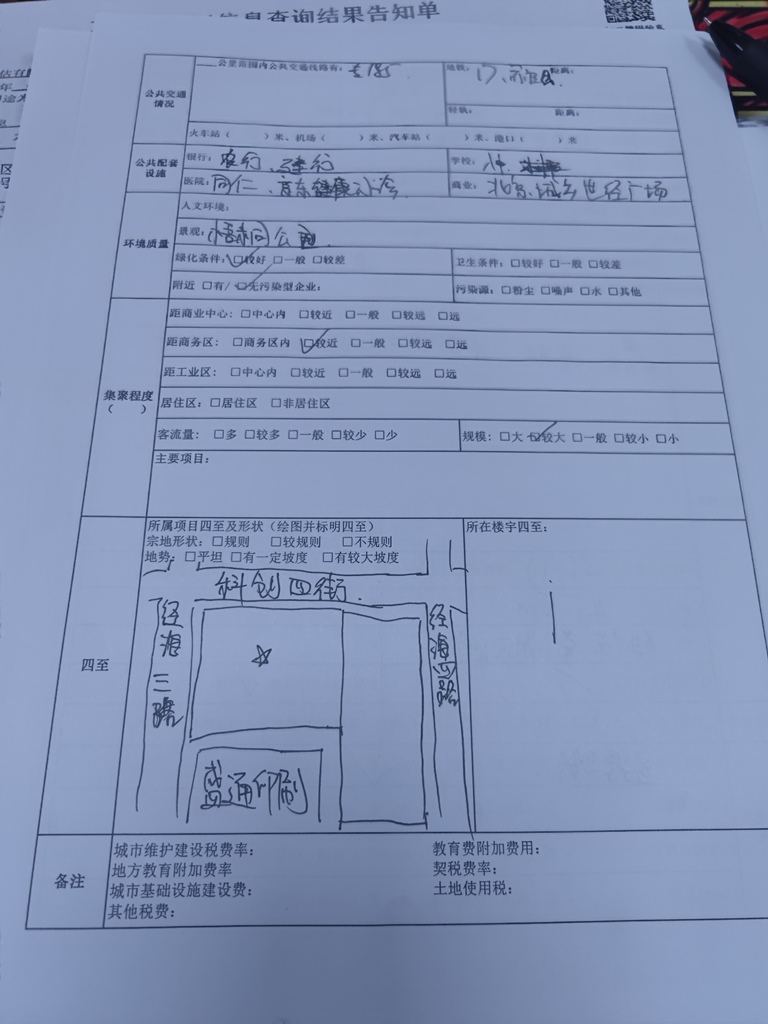 信息查询结果告知单
公共交通情况
公里范围内公共交通线路有：专185
地铁： 距离：
轻轨： 距离：
火车站（ ）米、机场（ ）米、汽车站（ ）米、港口（ ）米
公共配套设施
银行：农行、建行
学校：
医院：同仁、京东健康
商业：北京城乡世纪广场
环境质量
人文环境：
景观：公园
绿化条件：☑较好 □一般 □较差
卫生条件：□较好 □一般 □较差
附近 □有/☑无污染型企业：
污染源：□粉尘 □噪声 □水 □其他
集聚程度（ ）
距商业中心：□中心内 □较近 □一般 □较远 □远
距商务区：□商务区内 ☑较近 □一般 □较远 □远
距工业区：□中心内 □较近 □一般 □较远 □远
居住区：□居住区 □非居住区
客流量：□多 □较多 □一般 □较少 □少
规模：□大 ☑较大 □一般 □较小 □小
主要项目：
四至
所属项目四至及形状（绘图并标明四至）
宗地形状：□规则 □较规则 □不规则
地势：□平坦 □有一定坡度 □有较大坡度
所在楼宇四至：
科创四街
经海三路
经海四路
盛通印刷
备注
城市维护建设税费率：
教育费附加费用：
地方教育附加费率
契税费率：
城市基础设施建设费：
土地使用税：
其他税费：